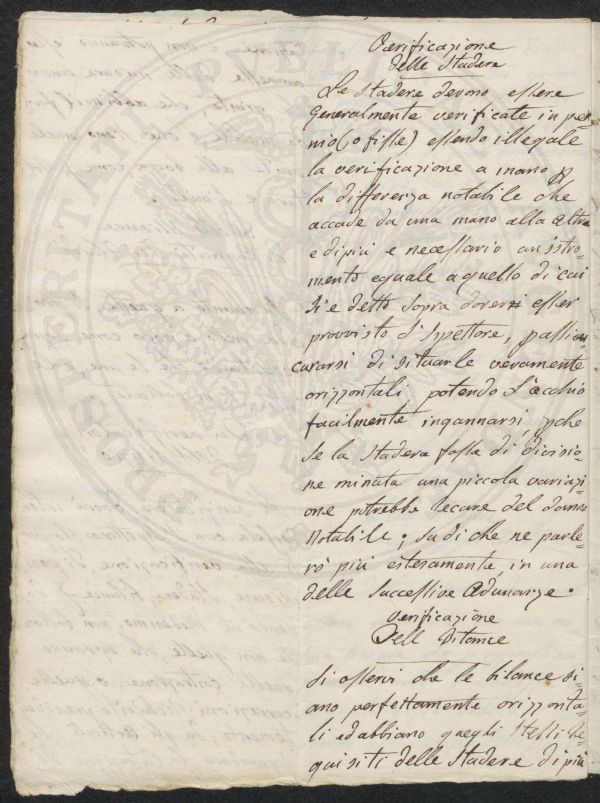 Verificazione
delle Stadere
Le Stadere devono essere
generalmente verificate in per-
nio (o fisse) essendo illegale
la verificazione a mano p
la differenza notabile che
accade da una mano alla altra
e dipiù e necessario un istro-
mento eguale a quello di cui
si è detto sopra doversi esser
provvisto l'Ispettore, p assi-
curarsi di situarle veramente
orizzontali, potendo l'occhio
facilmente ingannarsi, pche
se la Stadera fosse di divisio-
ne minuta una piccola variazi-
one potrebbe recare del danno
Notabile; su di che ne parle-
rò più estesamente in una
delle successive Adunanze.
Verificazione
Dell Bilance
Si osservi che le bilance si-
ano perfettamente orizzonta-
li ed abbiano quegli stessi re-
quisiti delle Stadere dipiù
PROSPERITATI PUBLI